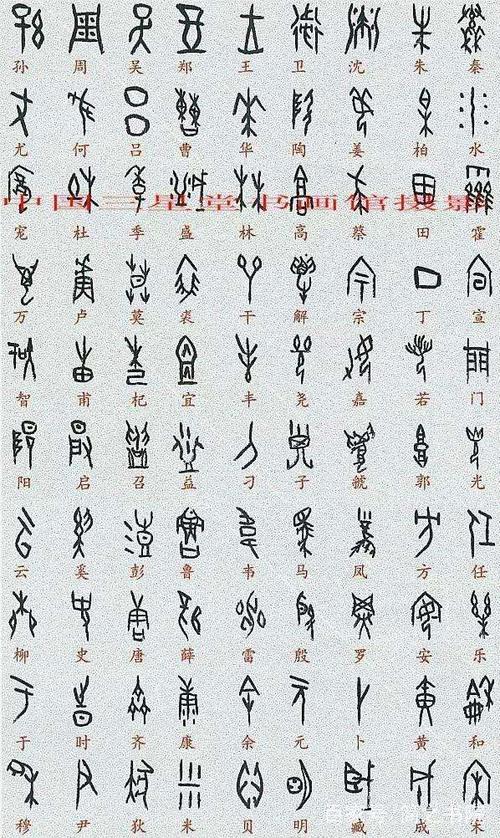 孙 周 吴 郑 王 卫 沈 朱 秦
尤 何 吕 曹 华 陶 姜 柏 水
宠 杜 季 盛 林 高 蔡 田 霍
万 卢 莫 裘 干 解 宗 丁 宣
智 甫 杞 宜 丰 尧 嘉 若 门
阳 启 召 益 刁 子 虢 郭 光
云 奚 彭 鲁 韦 马 凤 方 任
柳 史 唐 薛 雷 殷 罗 安 乐
于 时 齐 康 余 元 卜 黄 和
穆 尹 狄 米 贝 明 臧 成 宋